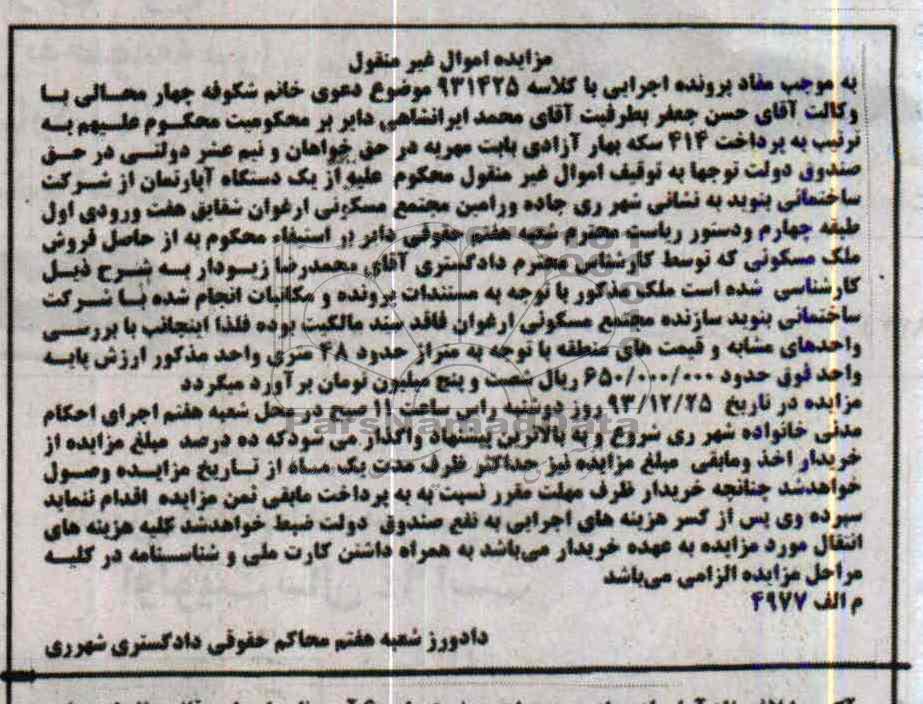 مزایده اموال غیر منقول
به موجب مفاد پرونده اجرایی با کلاسه ۹۳۱۴۲۵ موضوع دعوی خانم شکوفه چهار محالی با
وکالت آقای حسن جعفر بطرفیت آقای محمد ایرانشاهی دایر بر محکومیت محکوم علیهم به
ترتیب به پرداخت ۴۱۴ سکه بهار آزادی بابت مهریه در حق خواهان و نیم عشر دولتی در حق
صندوق دولت توجها به توقیف اموال غیر منقول محکوم علیه از یک دستگاه آپارتمان از شرکت
ساختمانی بنوید به نشانی شهر ری جاده ورامین مجتمع مسکونی ارغوان شقایق هفت ورودی اول
طبقه چهارم ودستور ریاست محترم شعبه هفتم حقوقی دائر بر استیفاء محکوم به از حاصل فروش
ملک مسکونی که توسط کارشناس محترم دادگستری آقای محمدرضا زیودار به شرح ذیل
کارشناسی شده است ملک مذکور با توجه به مستندات پرونده و مکاتبات انجام شده با شرکت
ساختمانی بنوید سازنده مجتمع مسکونی ارغوان فاقد سند مالکیت بوده فلذا اینجانب با بررسی
واحدهای مشابه و قیمت های منطقه با توجه به متراژ حدود ۴۸ متری واحد مذکور ارزش پایه
واحد فوق حدود ۶۵۰/۰۰۰/۰۰۰ ریال شصت و پنج میلیون تومان برآورد میگردد
مزایده در تاریخ ۹۳/۱۲/۲۵ روز دوشنبه راس ساعت ۱۱ صبح در محل شعبه هفتم اجرای احکام
مدنی خانواده شهر ری شروع و به بالاترین پیشنهاد واگذار می شودکه ده درصد مبلغ مزایده از
خریدار اخذ ومابقی مبلغ مزایده نیز حداکثر ظرف مدت یک ماه از تاریخ مزایده وصول
خواهدشد چنانچه خریدار ظرف مهلت مقرر نسبت به به پرداخت مابقی ثمن مزایده اقدام ننماید
سپرده وی پس از کسر هزینه های اجرایی به نفع صندوق دولت ضبط خواهدشد کلیه هزینه های
انتقال مورد مزایده به عهده خریدار می‌باشد به همراه داشتن کارت ملی و شناسنامه در کلیه
مراحل مزایده الزامی می‌باشد
م الف ۴۹۷۷
دادورز شعبه هفتم محاکم حقوقی دادگستری شهرری
ParsNamadData